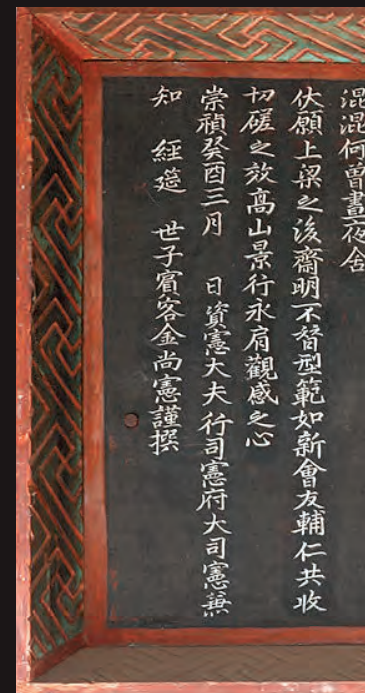 混混何曾晝夜舍
伏願上梁之後齋明不替型範如新會友輔仁共收
切磋之效高山景行永肩觀感之心
崇禎癸酉三月 日資憲大夫行司憲府大司憲兼
知 經筵 世子賓客金尚憲謹撰